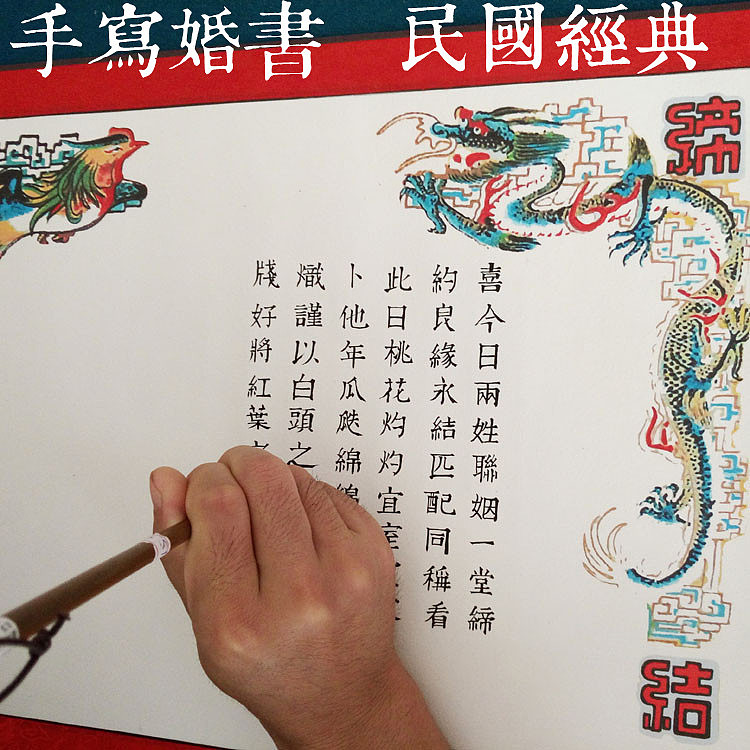 手寫婚書 民國經典
締
結
喜今日兩姓聯姻一堂締
約良緣永結匹配同稱看
此日桃花灼灼宜室
卜他年瓜瓞綿綿
熾謹以白頭之
牋好將紅葉